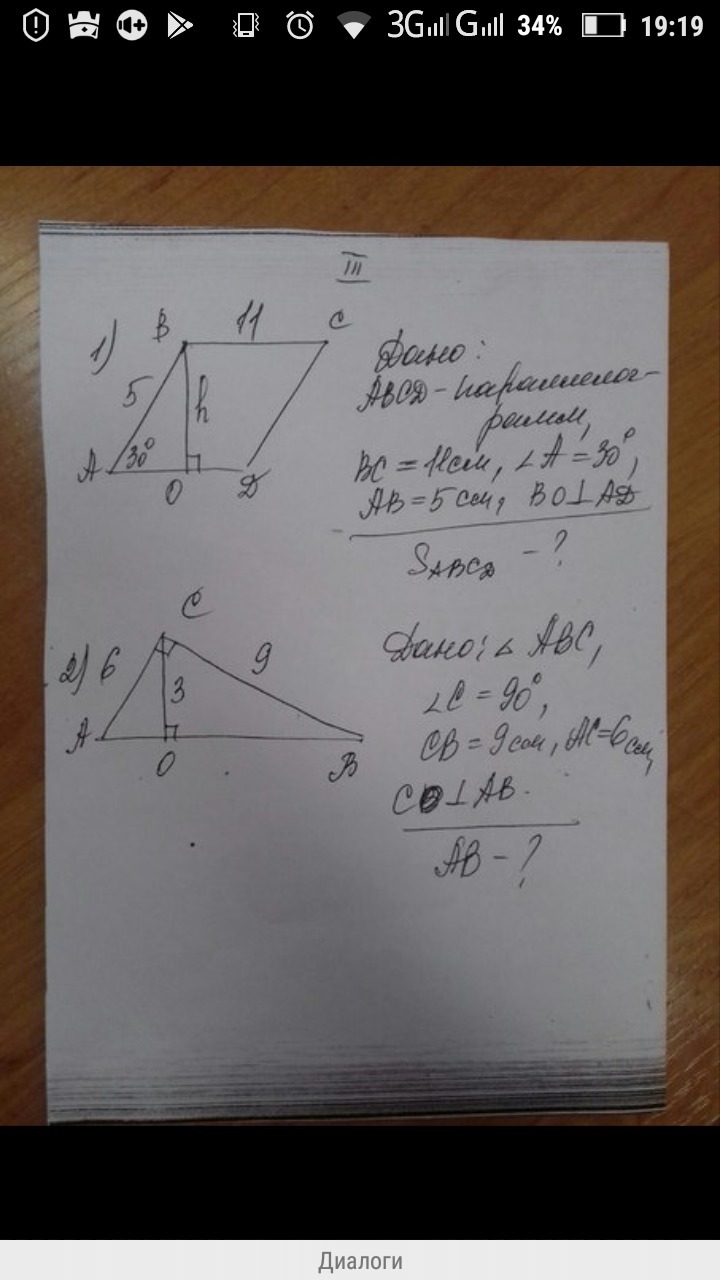 3G G 34% 19:19
III
1) B 11 C
5 h
A 30° O D
Дано:
ABCD - параллелог-
рамм,
BC = 11см, ∠A = 30°,
AB = 5 см, BO⊥AD
SABCD - ?
2) C
6 3 9
A O B
Дано: △ ABC,
∠C = 90°,
CB = 9 см, AC = 6 см,
CO⊥AB.
AB - ?
Диалоги